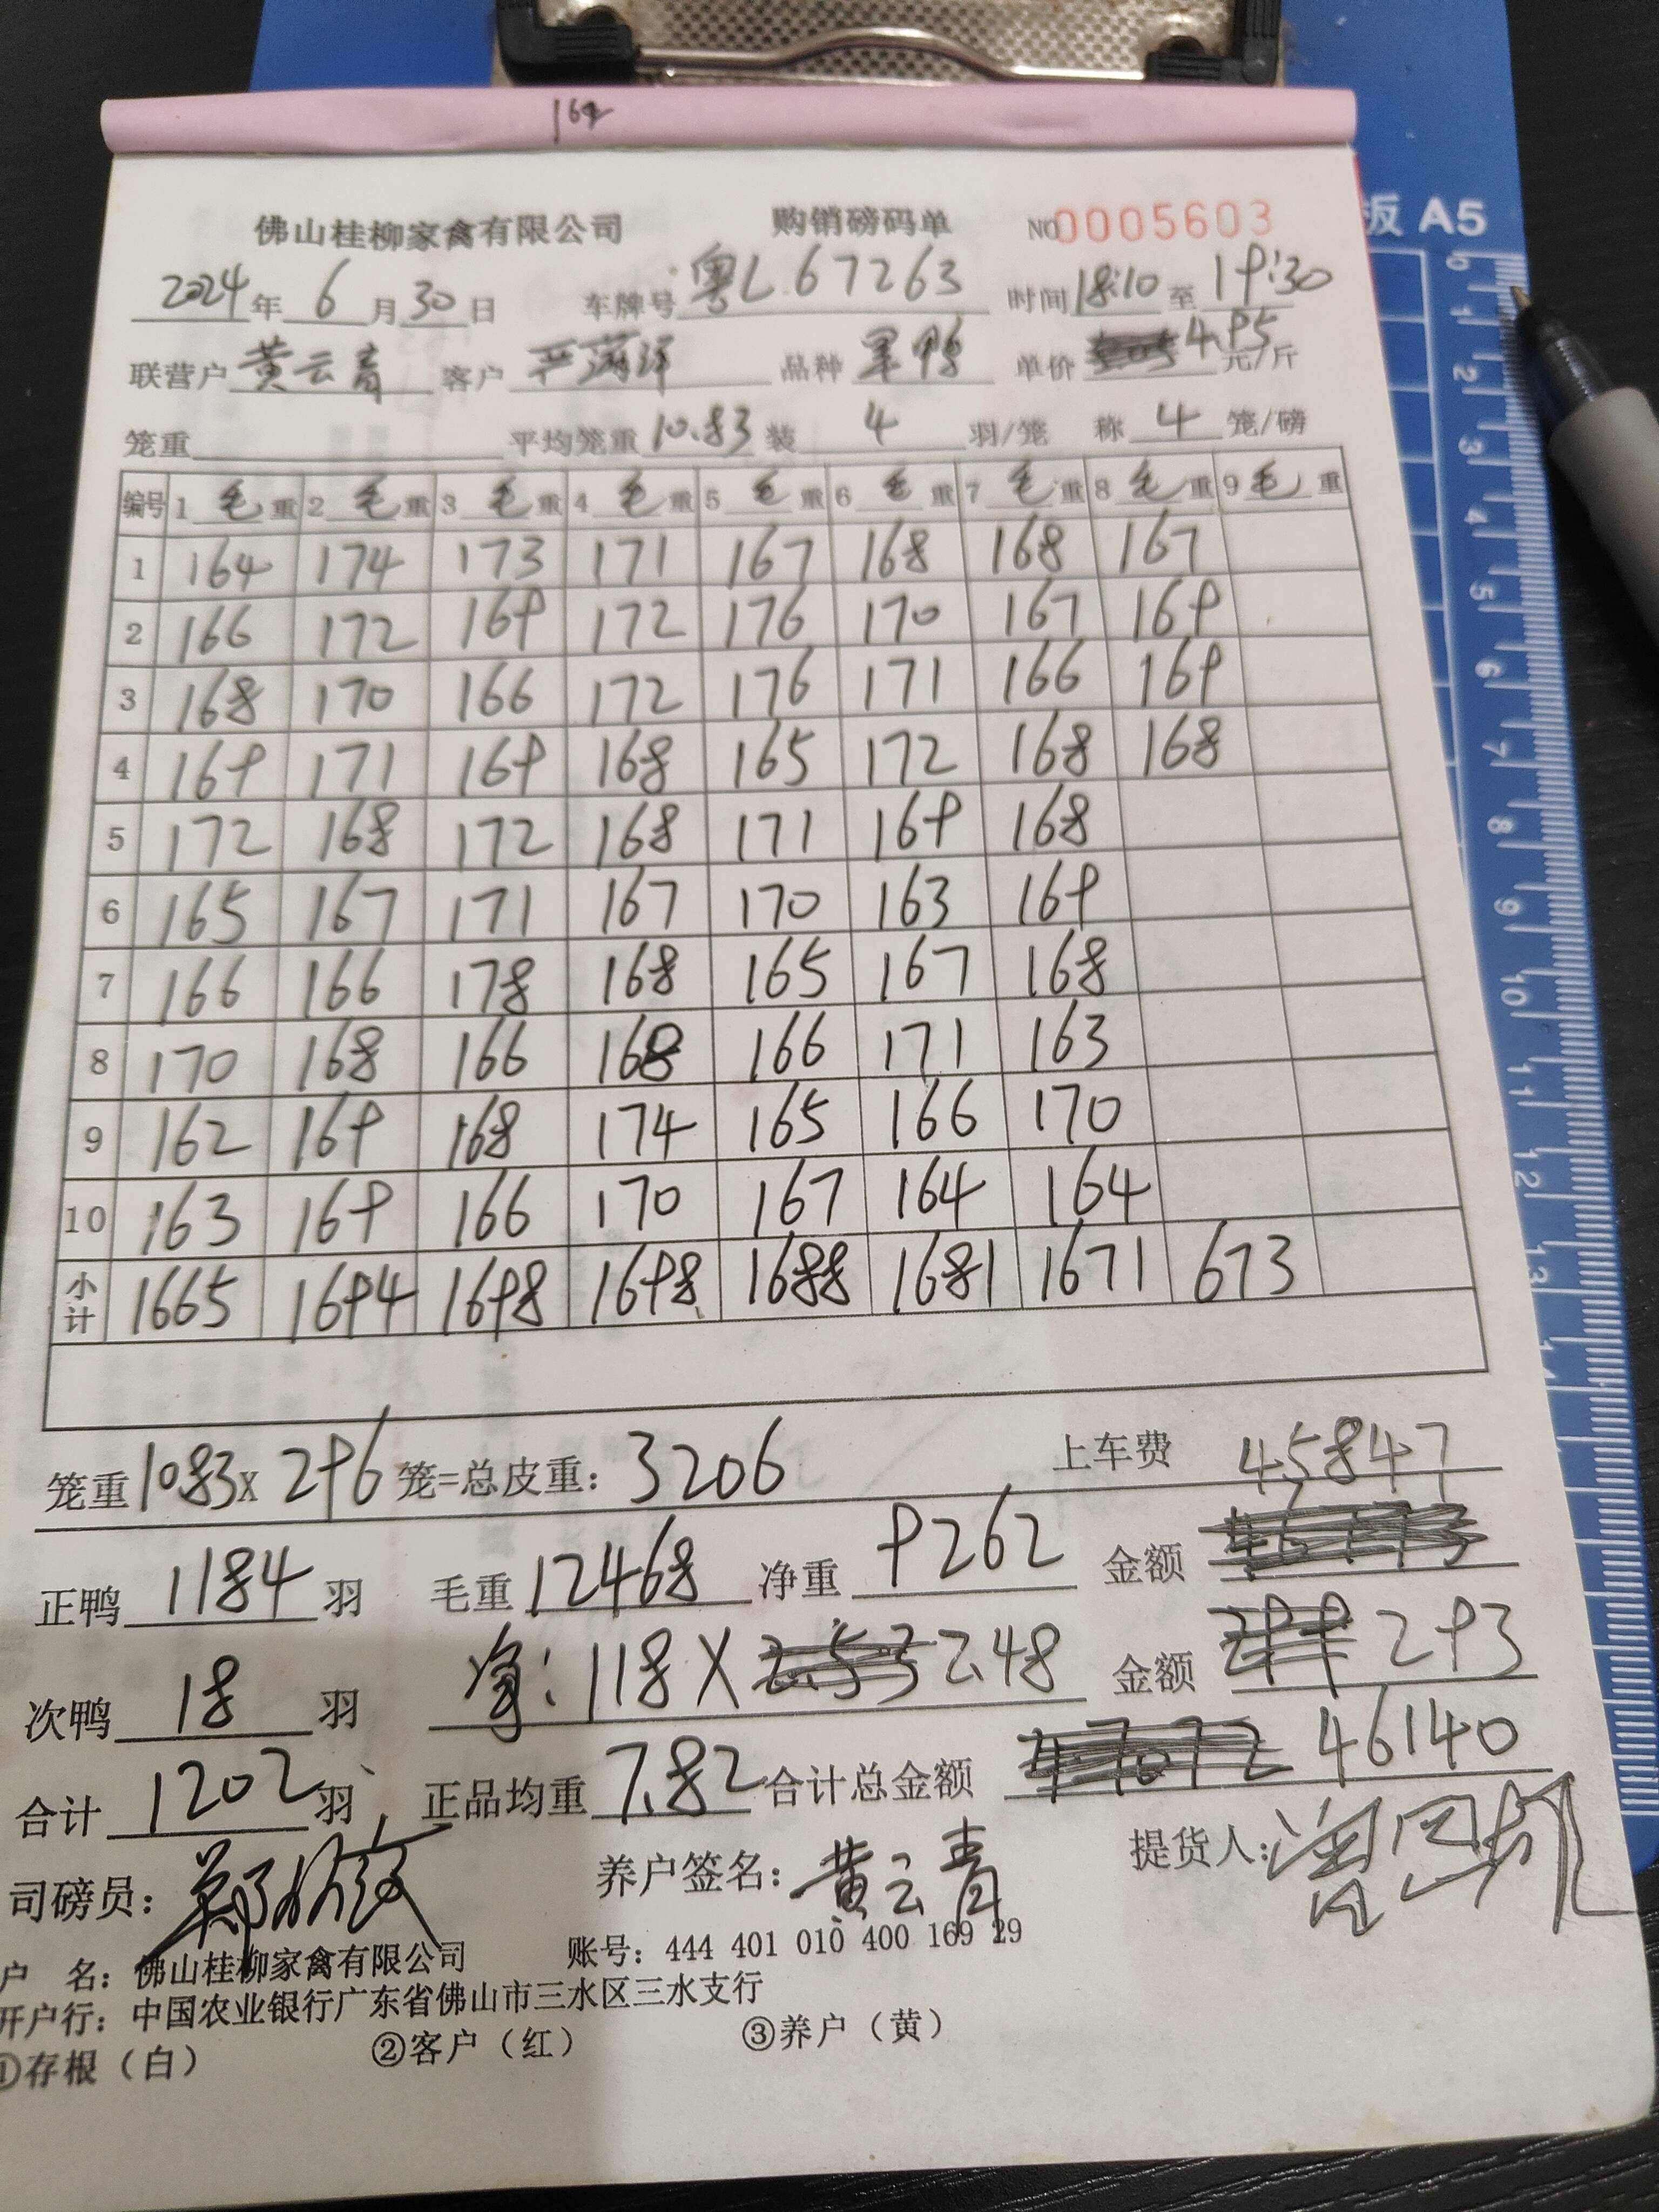 板 A5
佛山桂柳家禽有限公司 购销磅码单 NO 0005603
2024年 6 月 30 日 车牌号 粤L 67263 时间 18:10 至 19:30
联营户 黄云青 客户 品种 单价 4.95 元/斤
笼重 平均笼重 10.83 装 4 羽/笼 称 4 笼/磅
编号 1 毛 重 2 毛 重 3 毛 重 4 毛 重 5 毛 重 6 毛 重 7 毛 重 8 毛 重 9 毛 重
1 164 174 173 171 167 168 168 167
2 166 172 169 172 176 170 167 169
3 168 170 166 172 176 171 166 169
4 169 171 169 168 165 172 168 168
5 172 168 172 168 171 169 168
6 165 167 171 167 170 163 169
7 166 166 178 168 165 167 168
8 170 168 166 168 166 171 163
9 162 169 168 174 165 166 170
10 163 169 166 170 167 164 164
小计 1665 1694 1698 1698 1688 1681 1671 673
笼重 1083 x 296 笼=总皮重: 3206 上车费 45847
正鸭 1184 羽 毛重 12468 净重 9262 金额
次鸭 18 羽 净: 118 X 2.48 金额 293
合计 1202 羽 正品均重 7.82 合计总金额 46140
司磅员: 养户签名: 黄云青 提货人:
户 名: 佛山桂柳家禽有限公司 账号: 444 401 010 400 169 29
开户行: 中国农业银行广东省佛山市三水区三水支行
①存根（白） ②客户（红） ③养户（黄）